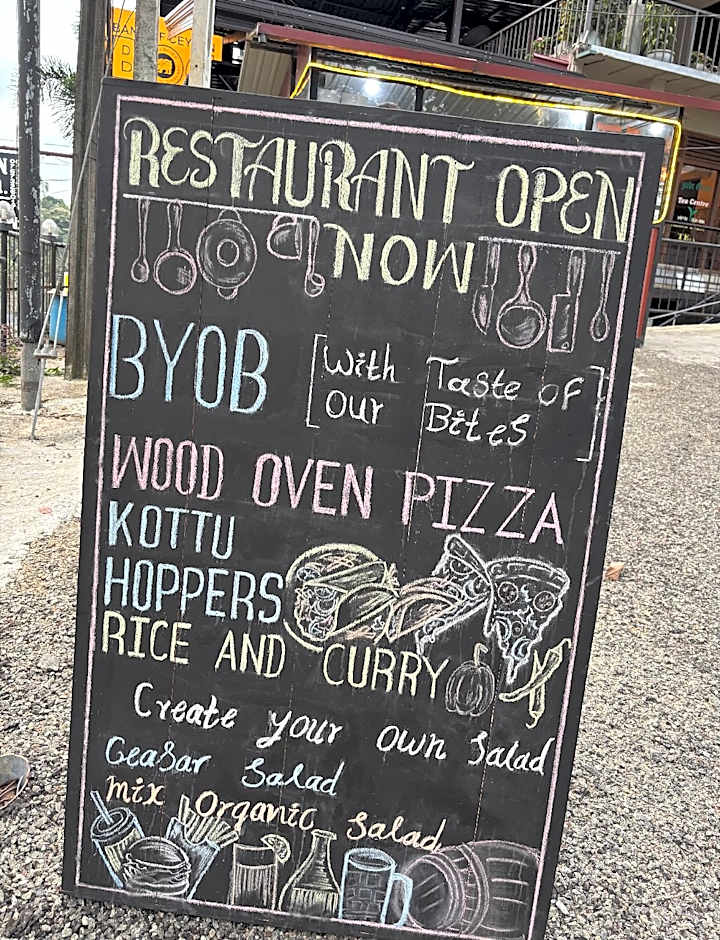 RESTAURANT OPEN
NOW
BYOB [With Taste of
our Bites]
WOOD OVEN PIZZA
KOTTU
HOPPERS
RICE AND CURRY
Create your own Salad
Ceasar Salad
mix Organic Salad
Tea Centre